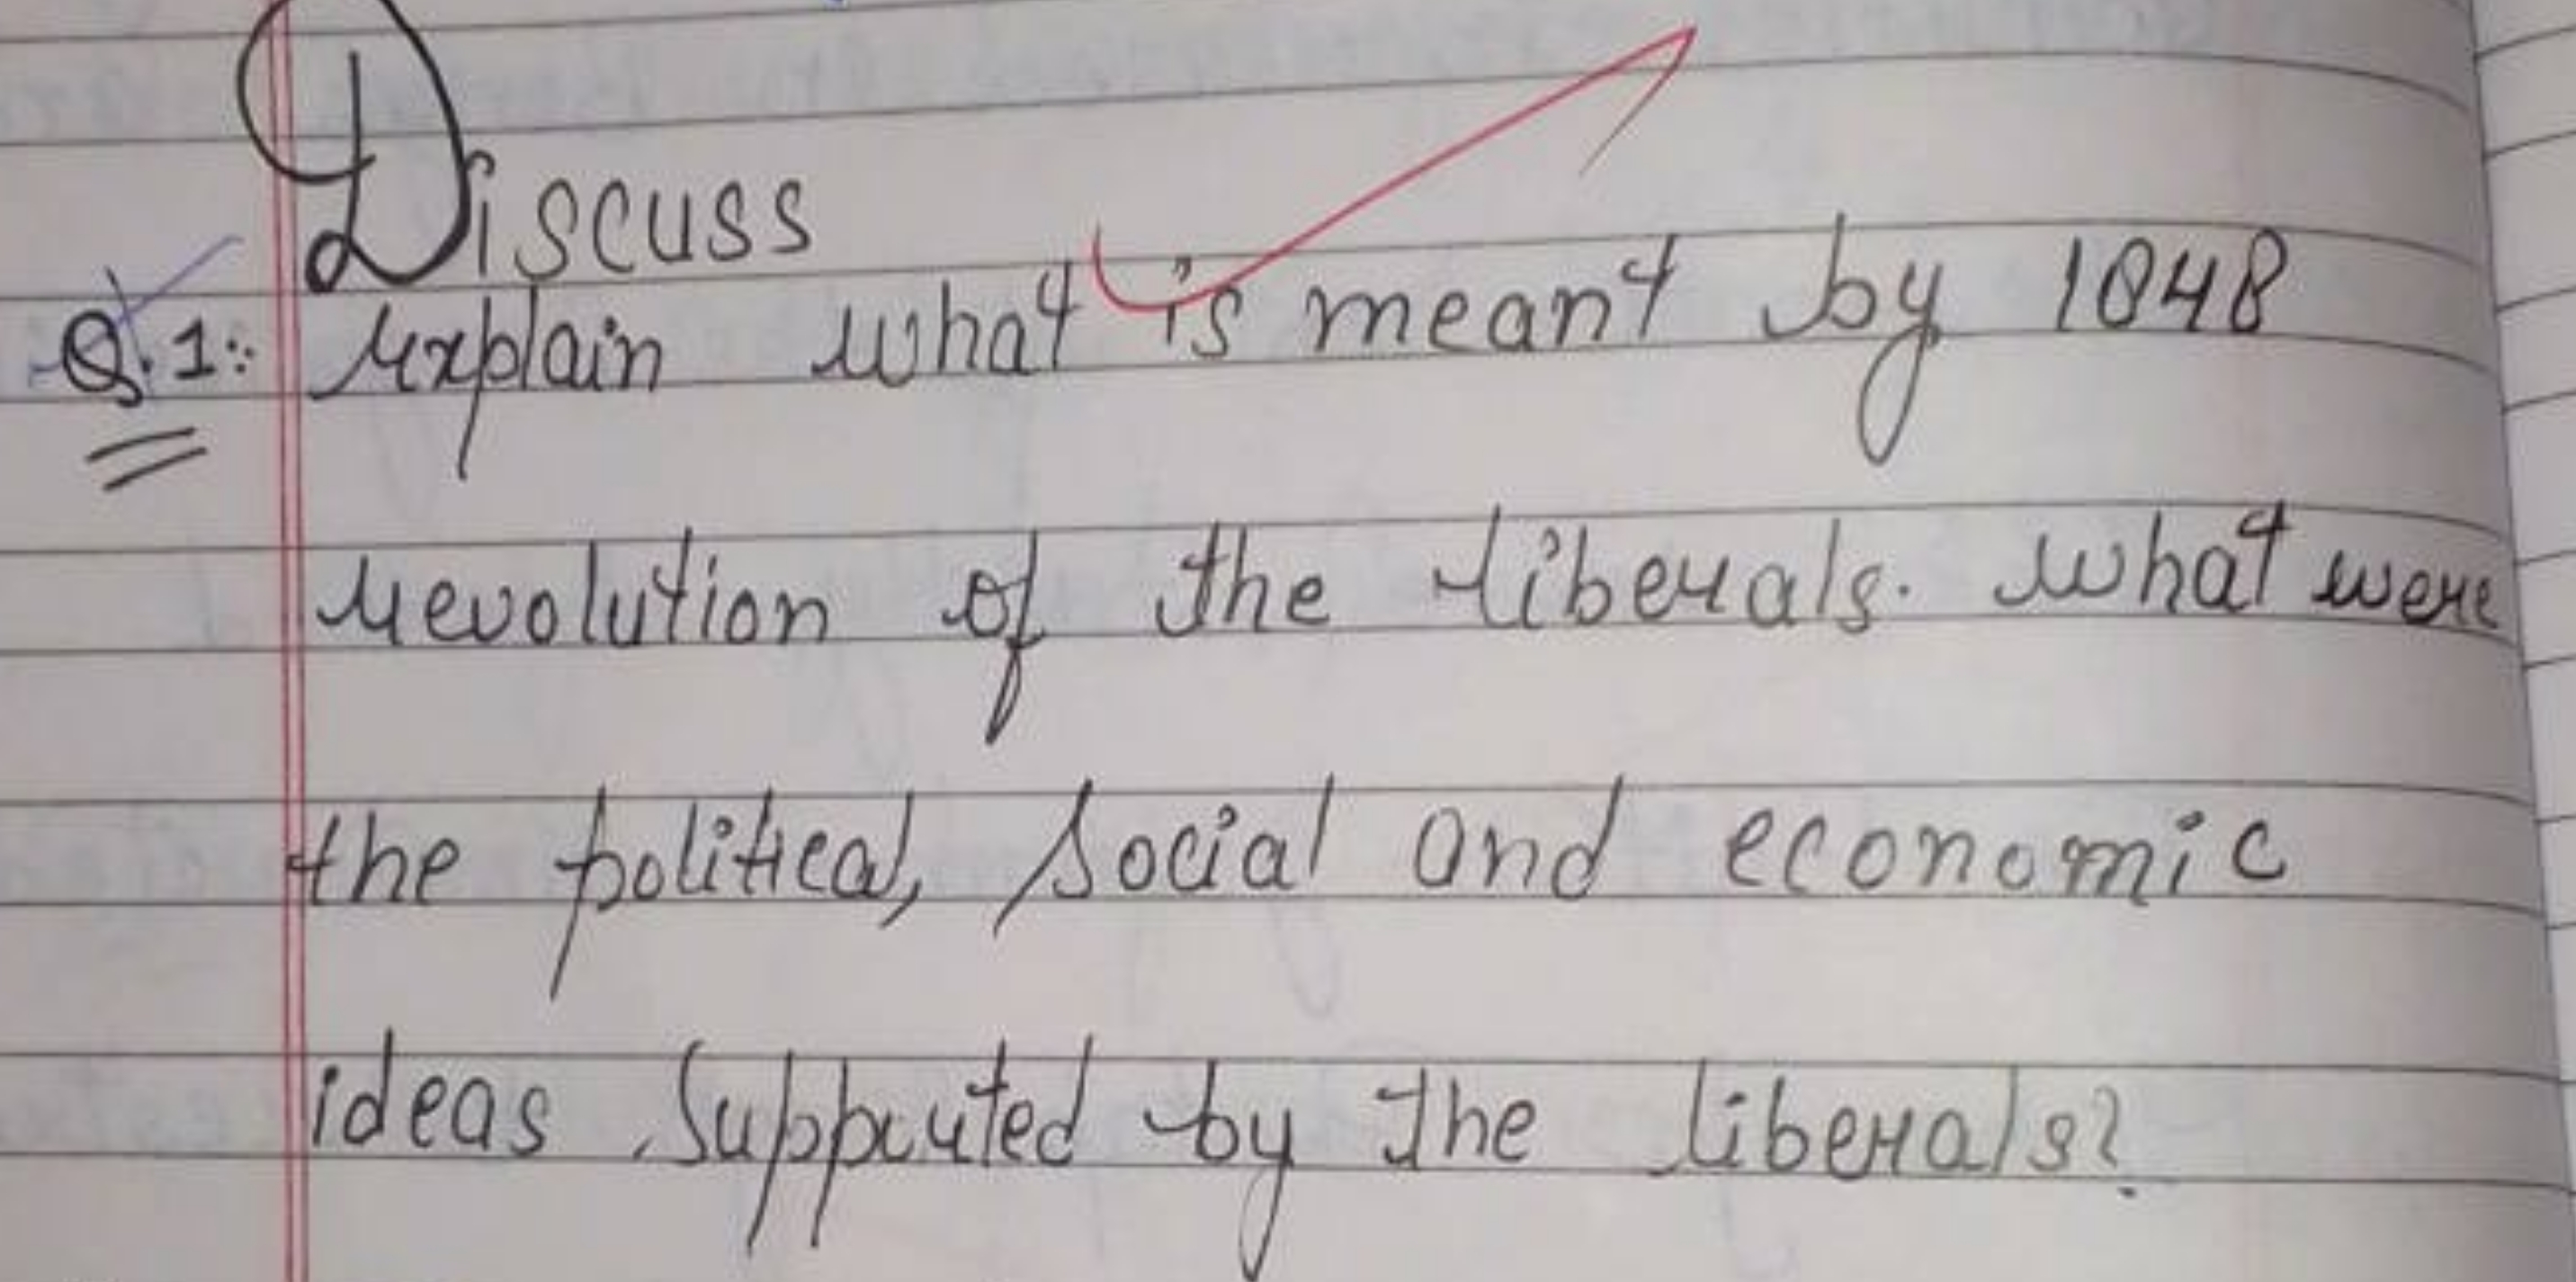 Discuss
Q.1: Explain what is meant by 1848
revolution of the liberals. What were
the political, social and economic
ideas supported by the liberals?